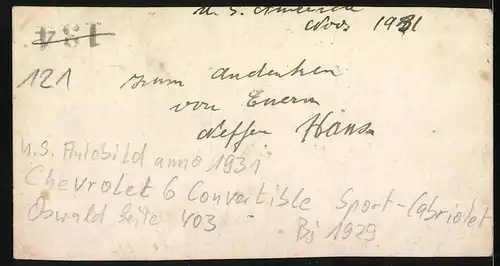 U. S. Amerika
Nov. 1931
184
121
zum Andenken
von Euern
Neffen Hans
U.S. Autobild anno 1931
Chevrolet 6 Convertible Sport-Cabriolet
Oswald Seite 403 Bj 1929